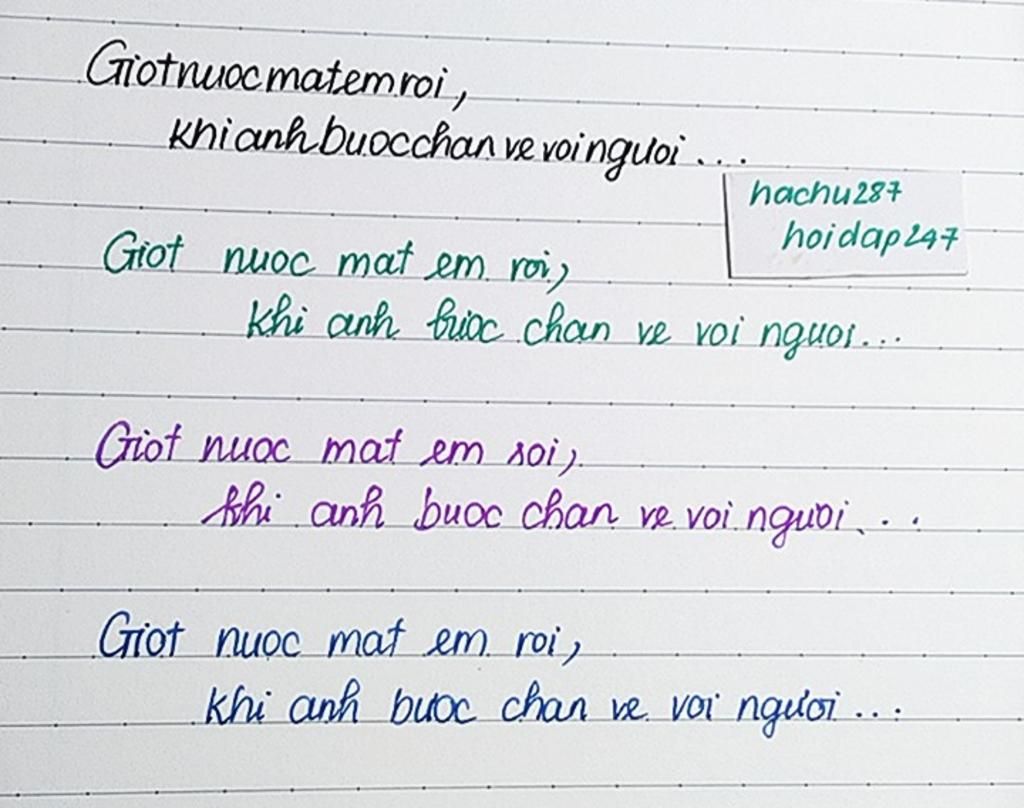 Giotnuocmatemroi,
khianhbuocchanvevoinguoi...
hachu287
hoidap247
Giot nuoc mat em roi,
khi anh buoc chan ve voi nguoi...
Giot nuoc mat em roi,
khi anh buoc chan ve voi nguoi...
Giot nuoc mat em roi,
khi anh buoc chan ve voi nguoi...